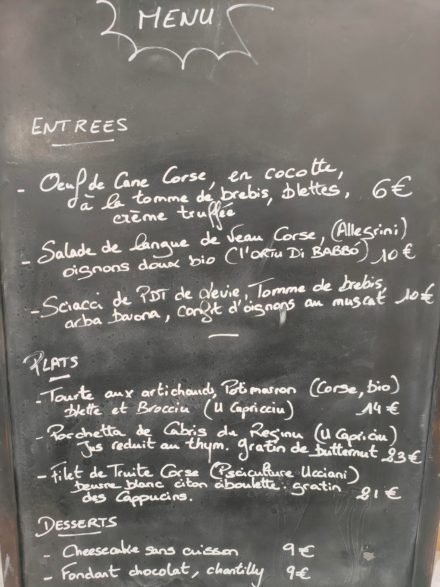 MENU
ENTREES
- Oeuf de Cane Corse, en cocotte,
à la tomme de brebis, blettes, 6€
crème truffée
- Salade de langue de Veau Corse, (Allegrini)
oignons doux bio (L'ORTU DI BABBÒ) 10€
- Sciacci de PDT de plevie, Tomme de brebis,
arba buona, confit d'oignons au muscat 10€
PLATS
- Tourte aux artichauds, Potimarron (Corse, bio)
blette et Brocciu (U Capricciu) 14€
- Porchetta de Cabris du Reginu (U Capricciu)
Jus reduit au thym. gratin de butternut 23€
- Filet de Truite Corse (Pisciculture Ucciani)
beurre blanc citon ciboulette. gratin
des Cappucins. 21€
DESSERTS
- Cheesecake sans cuisson 9€
- Fondant chocolat, chantilly 9€